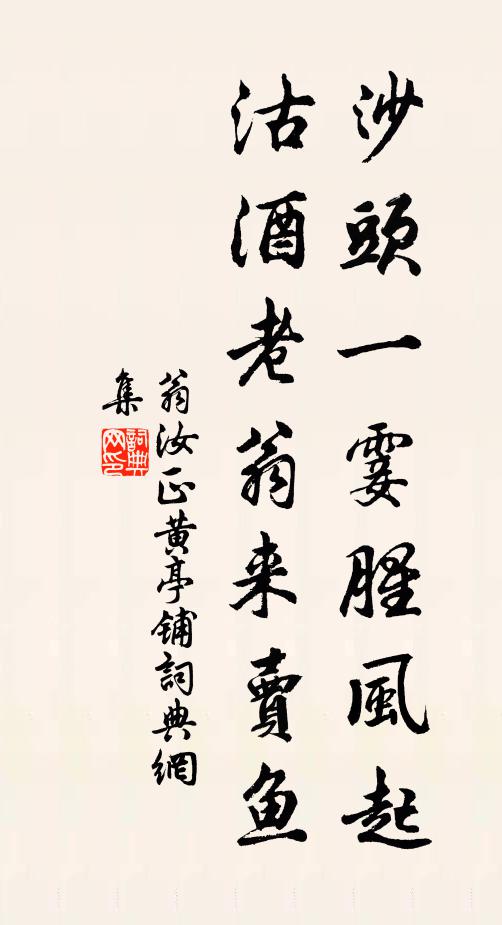 沙頭一霎腥風起
沽酒老翁来賣鱼
翁汝正黄亭铺詞典網
集
詞典
网印